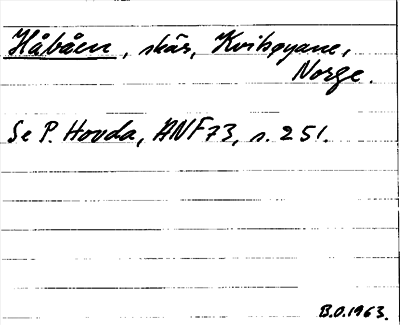 Håbåen, skär, Kvitsøyane,
Norge.
Se P. Hovda, ANF 73, s. 251.
B.O.1963.